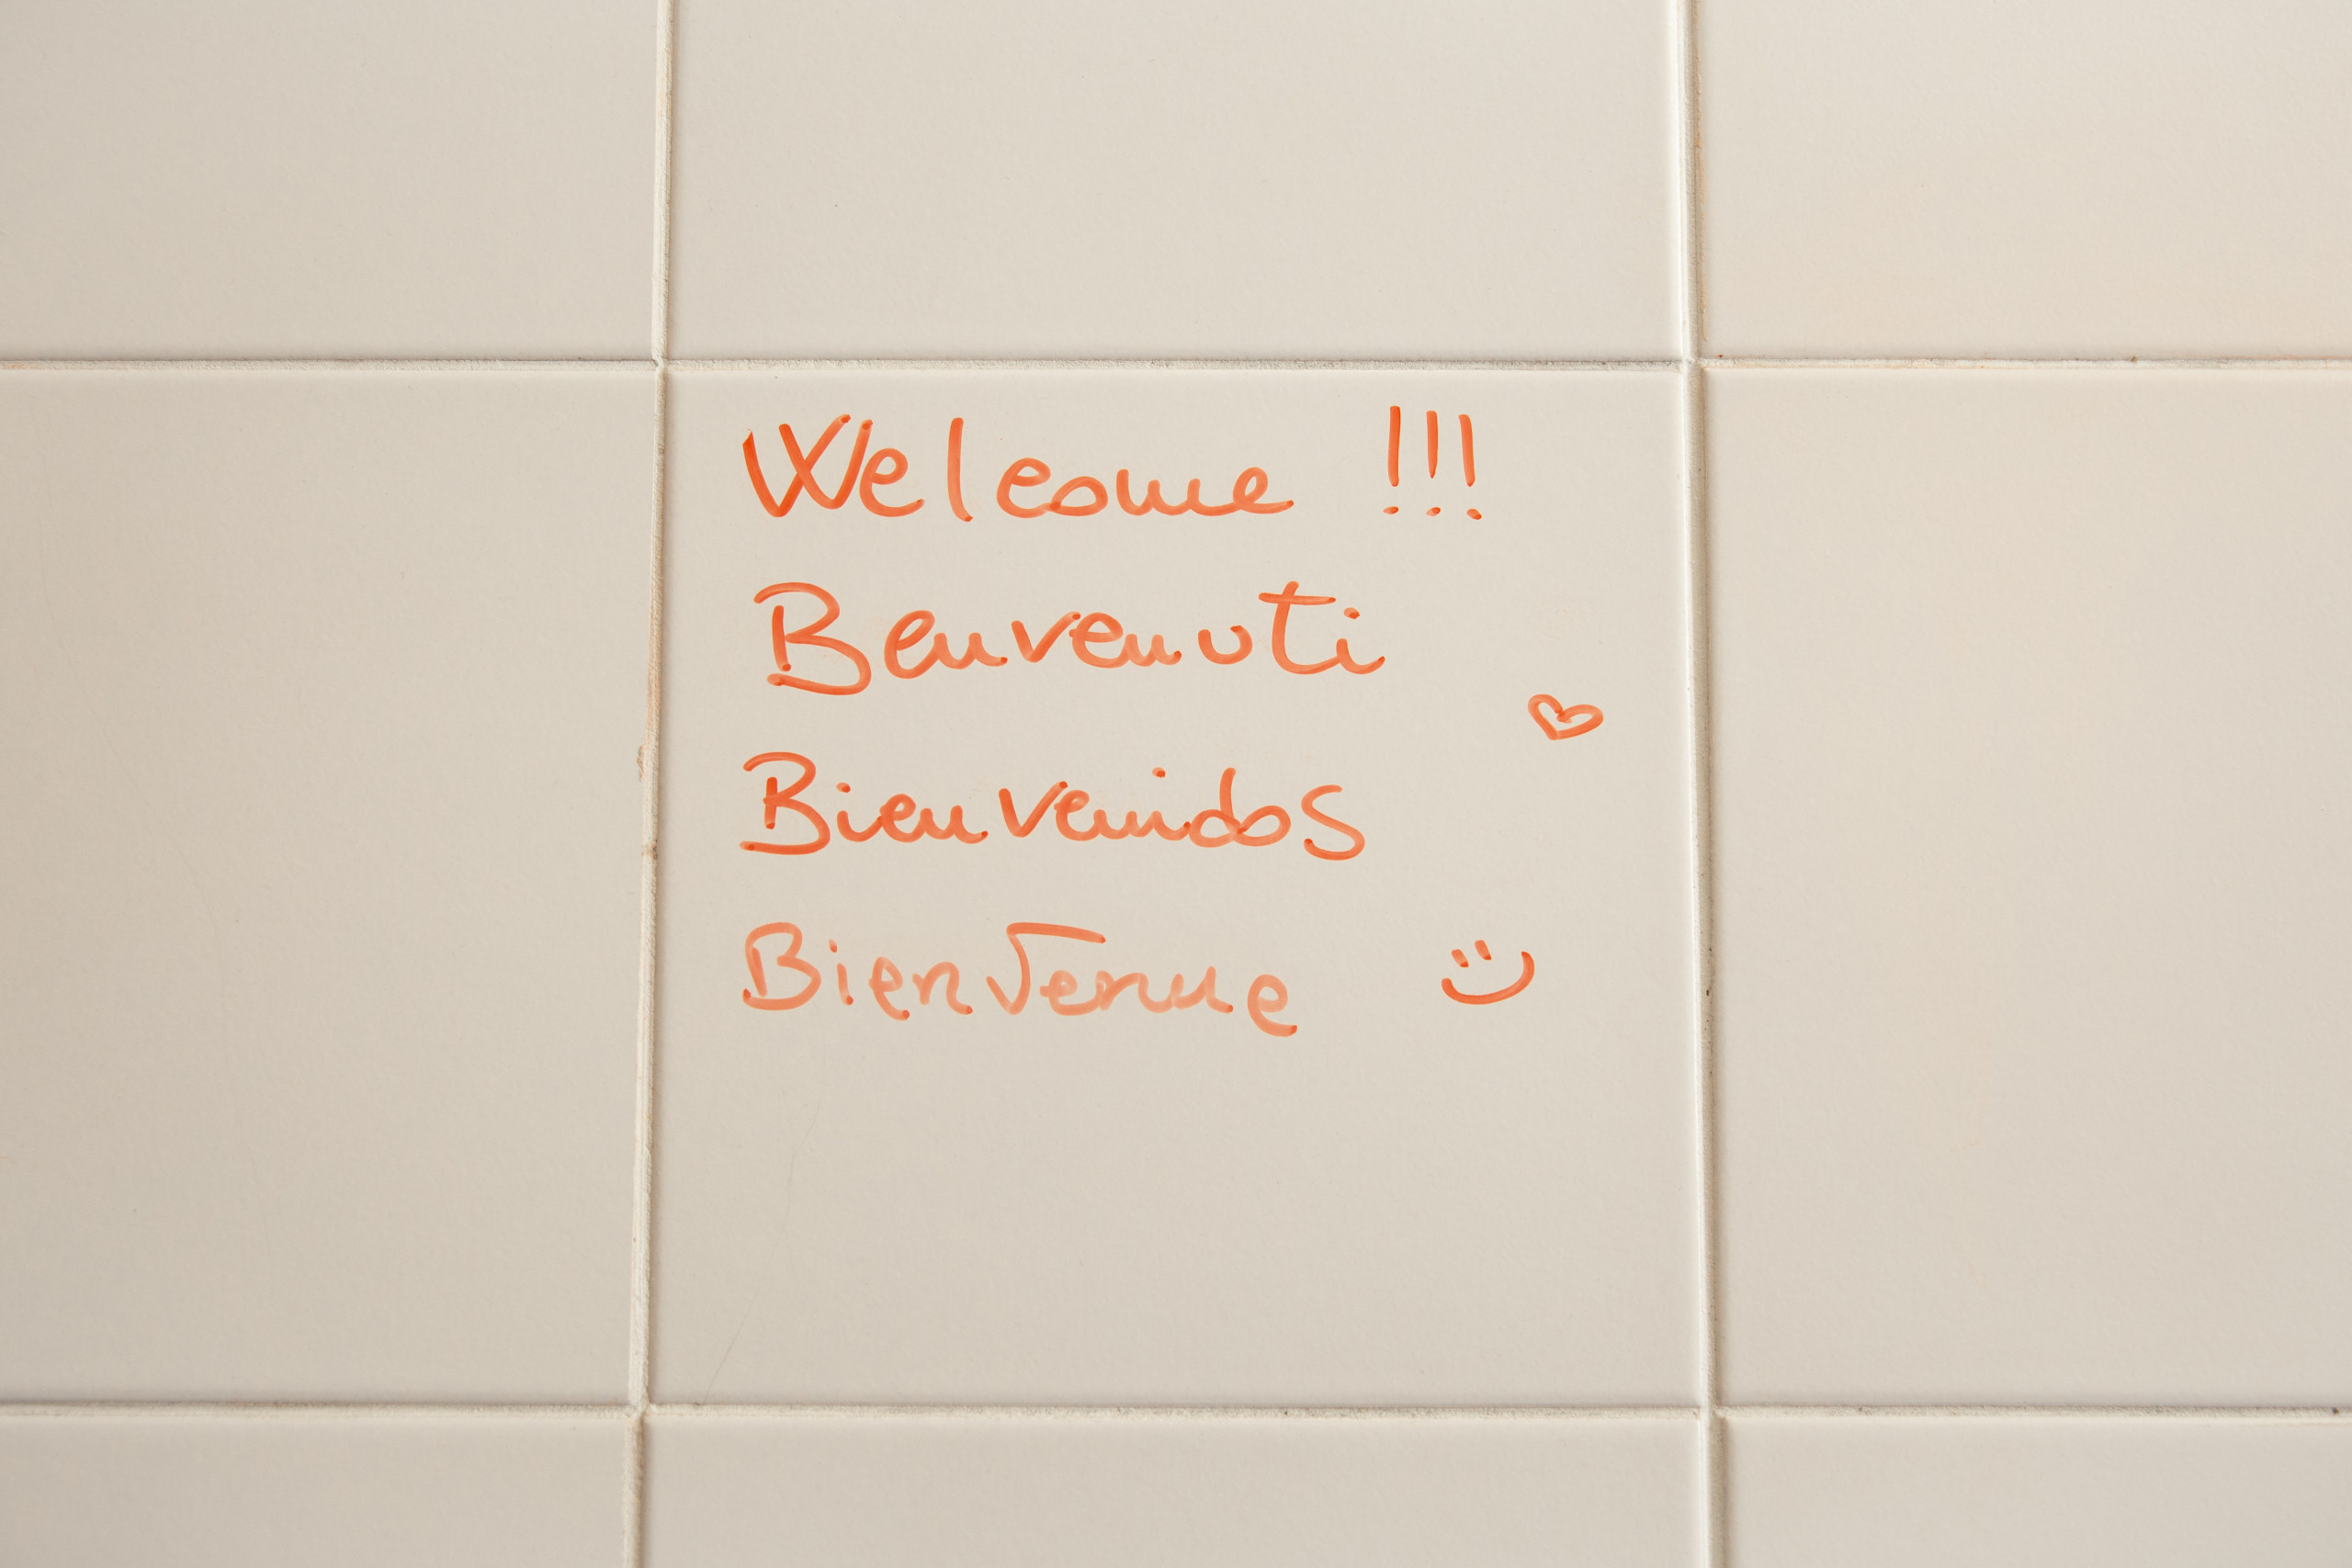 Welcome !!!
Benvenuti
Bienvenidos
Bienvenue